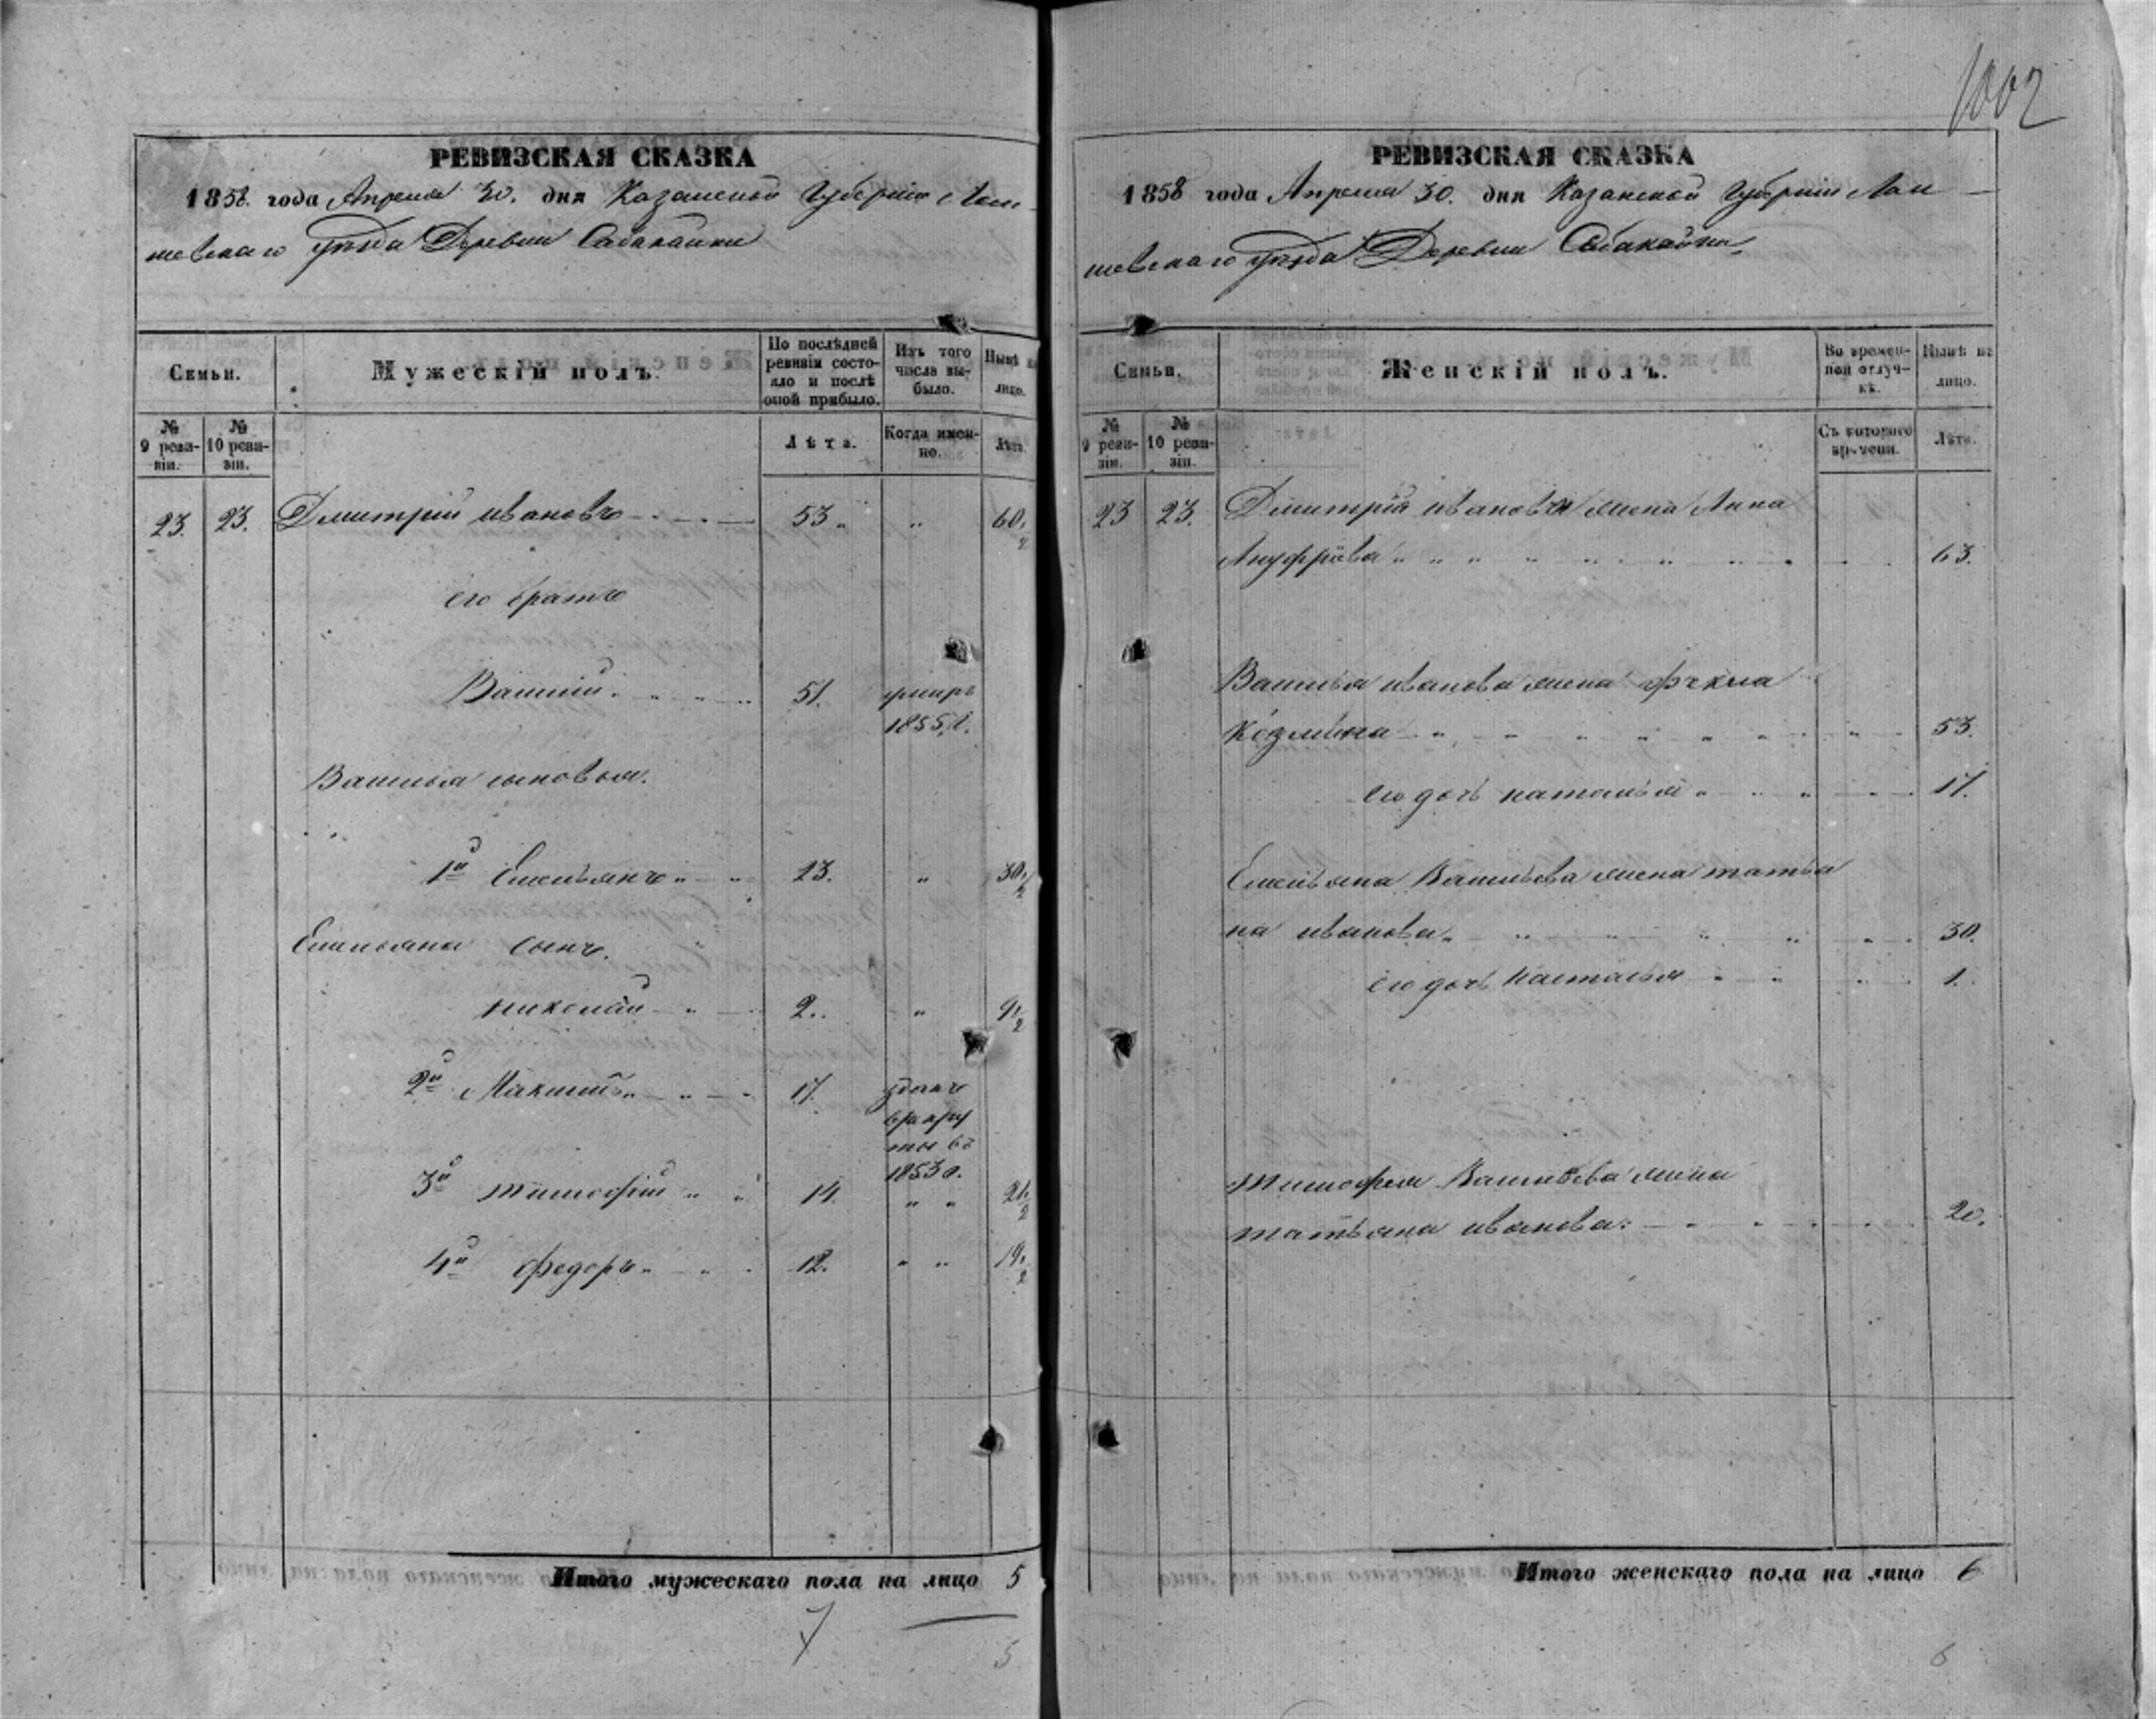 1002
РЕВИЗСКАЯ СКАЗКА
1858. года Апреля 30. дня Казанской Губерніи Лаи
шевскаго уѣзда Деревни Сабакайки
Семьи.
Мужескій полъ.
По послѣдней ревизіи состояло и послѣ оной прибыло.
Изъ того числа выбыло.
Нынѣ на лицо.
№ 9 ревизіи.
№ 10 ревизіи.
Лѣта.
Когда именно.
Лѣта
23. 23. Дмитрій ивановъ 53. " 60 1/2
его братъ
Василій. 51. умиръ
1855. г.
Василья сыновья.
1й Емельянъ 23. " 30 1/2
Емельяна сынъ.
николай 2. " 9 1/2
2й Максимъ 17. зданъ
врекру
ты въ
1853 г.
3й тимофѣй 14. " " 21 1/2
4й федоръ 12. " " 19 1/2
Итого мужескаго пола на лицо 5
7
5
РЕВИЗСКАЯ СКАЗКА
1858 года Апреля 30. дня Казанской Губерніи Лаи
шевскаго уѣзда Деревни Сабакайки
Семьи.
Женскій полъ.
Во временной отлучкѣ.
Нынѣ на лицо.
№ 9 ревизіи.
№ 10 ревизіи.
Съ котораго времени.
Лѣта.
23 23. Дмитрія иванова жена Анна
Ануфріева 63.
Василья иванова жена фекла
Козмина 53.
его дочь наталья 17.
Емельяна Васильева жена татья
на иванова 30.
его дочь настасья 1.
тимофея Васильева жена
татьяна иванова. 20.
Итого женскаго пола на лицо 6
6